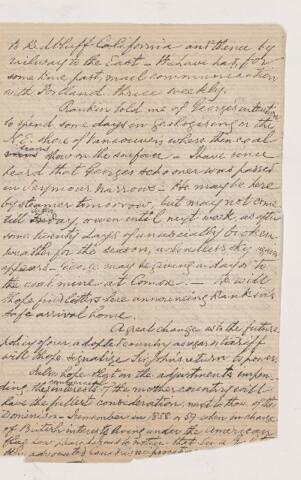 to Red Bluff California and thence by
railway to the East - We have had, for
some time past, mail communication
with Portland thrice weekly.
Rankin told me of George's intention
to spend some days in geologising on the
N.E. shore of Vancouver, where then coal
seams show on the surface - I have since
heard that George's schooner was passed
in Seymour Narrows - He may be here
by steamer tomorrow, but may not come
till Friday, or even until next week, as after
some twenty days of unusually broken
weather for the season, a
appears - George may be giving a day or to
the coal mine at Comox. - He will
hope find letters here announcing Rankin's
safe arrival home.
A great change as to the future
policy of our adopted country as regards tariff
will hope signalize Sir John's return to power.
I also hope that in the adjustments impen-
ding the interests of the mother country will
have the fullest consideration next to those of the
Dominion - I remember in 1858 or 59 when in charge
of British interests living under the American
flag how
advocated